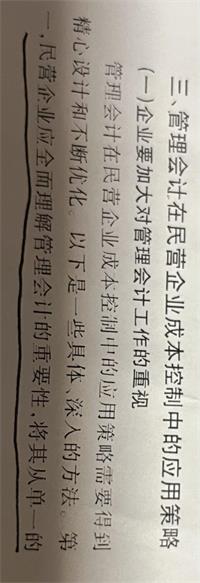 三、管理会计在民营企业成本控制中的应用策略
(一)企业要加大对管理会计工作的重视
管理会计在民营企业成本控制中的应用策略需要得到
精心设计和不断优化。以下是一些具体、深入的方法。第
一,民营企业应全面理解管理会计的重要性,将其从单一的